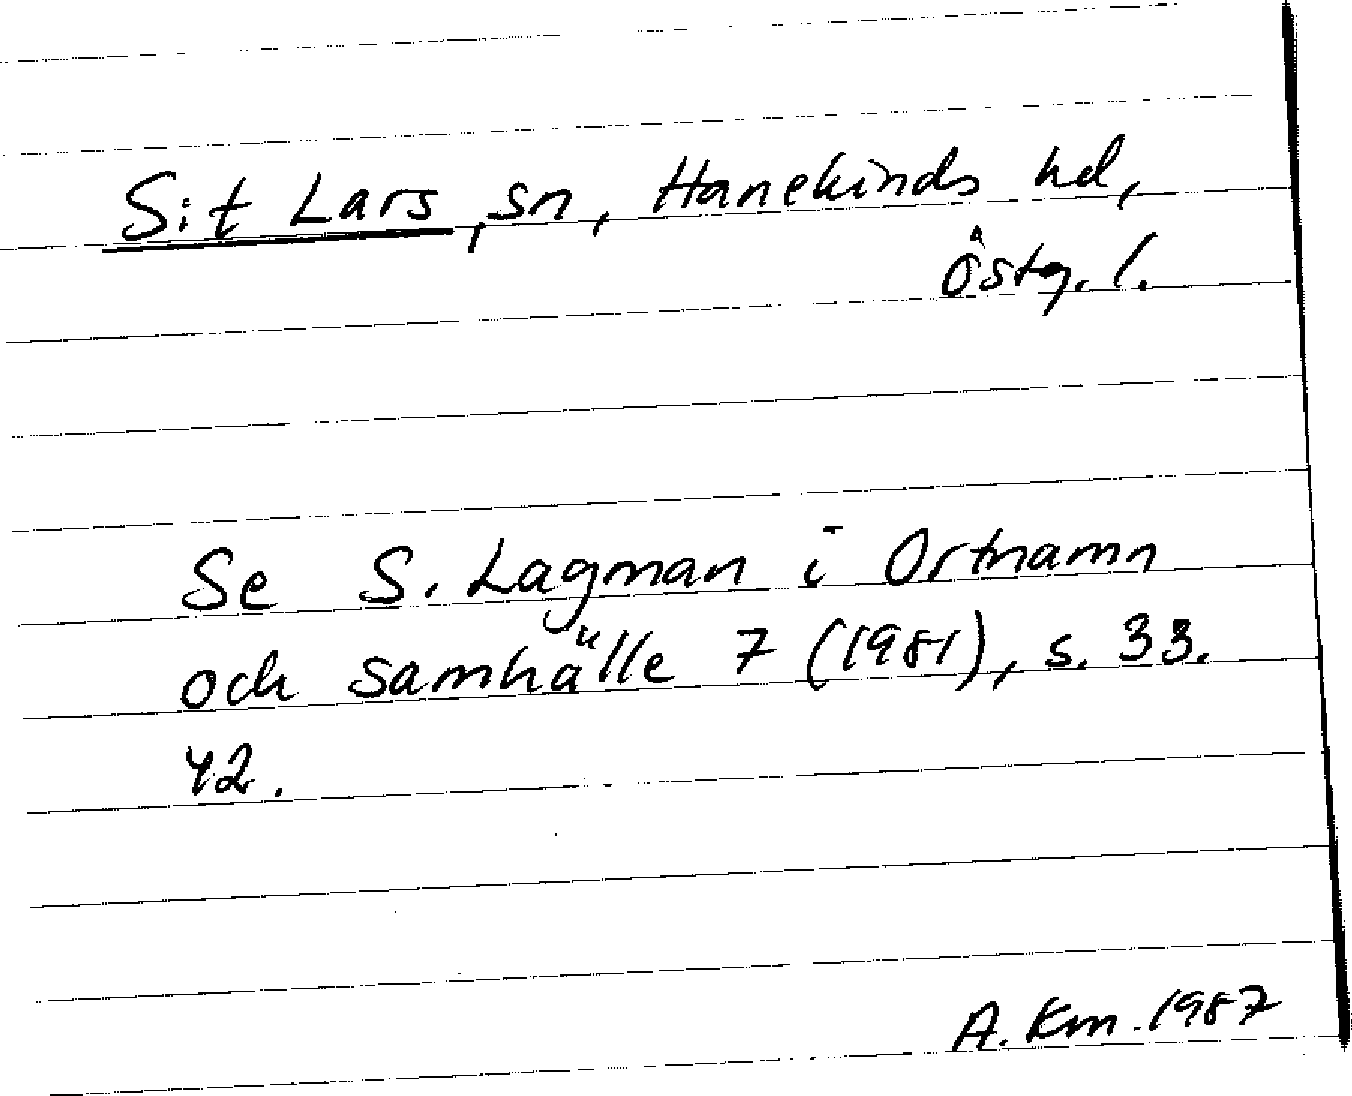 S:t Lars, sn, Hanekinds hd,
Östg. l.
Se S. Lagman i Ortnamn
och samhälle 7 (1981), s. 33.
42.
A. Km. 1987